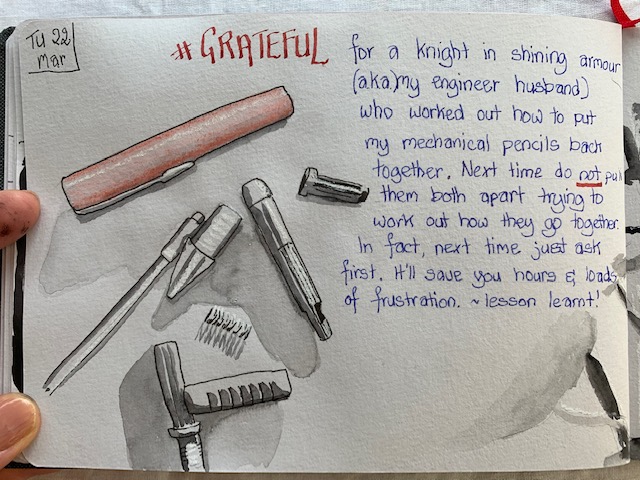 Tu 22
Mar
#GRATEFUL
for a knight in shining armour
(a.k.a. my engineer husband)
who worked out how to put
my mechanical pencils back
together. Next time do not pull
them both apart trying to
work out how they go together.
In fact, next time just ask
first. It'll save you hours & loads
of frustration. ~ lesson learnt!